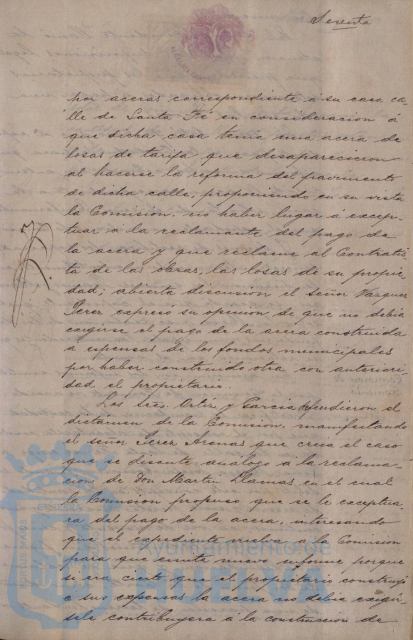 Sesenta
por aceras correspondiente á su casa ca
lle de Santa Fé en consideracion á
que dicha casa tenia una acera de
losas de tarifa que desaparecieron
al hacerse la reforma del pavimento
de dicha calle, proponiendo en su vista
la Comision, no haber lugar á excep-
tuar á la reclamante del pago de
la acera y que reclame al Contratis
ta de las obras, las losas de su propie
dad; abierta discusion el señor Vazquez
Perez expresó su opinion de que no debia
exigirse el pago de la acera construida
a expensas de los fondos municipales
por haber construido otra con anteriori
dad el propietario.
Los Sres. Ortiz y Garcia defendieron el
dictámen de la Comision, manifestando
el señor Perez Arenas que creia el caso
que se discute análogo á la reclama-
cion de Don Martin Llamas en el cual
la Comision propuso que se le exceptua
ra del pago de la acera, interesando
que el expediente vuelva á la Comision
para que emita nuevo informe porque
si era cierto que el propietario construyó
á sus expensas la acera no debia exigir
sele contribuyera á la construccion de
Ayuntamiento de
HUELVA